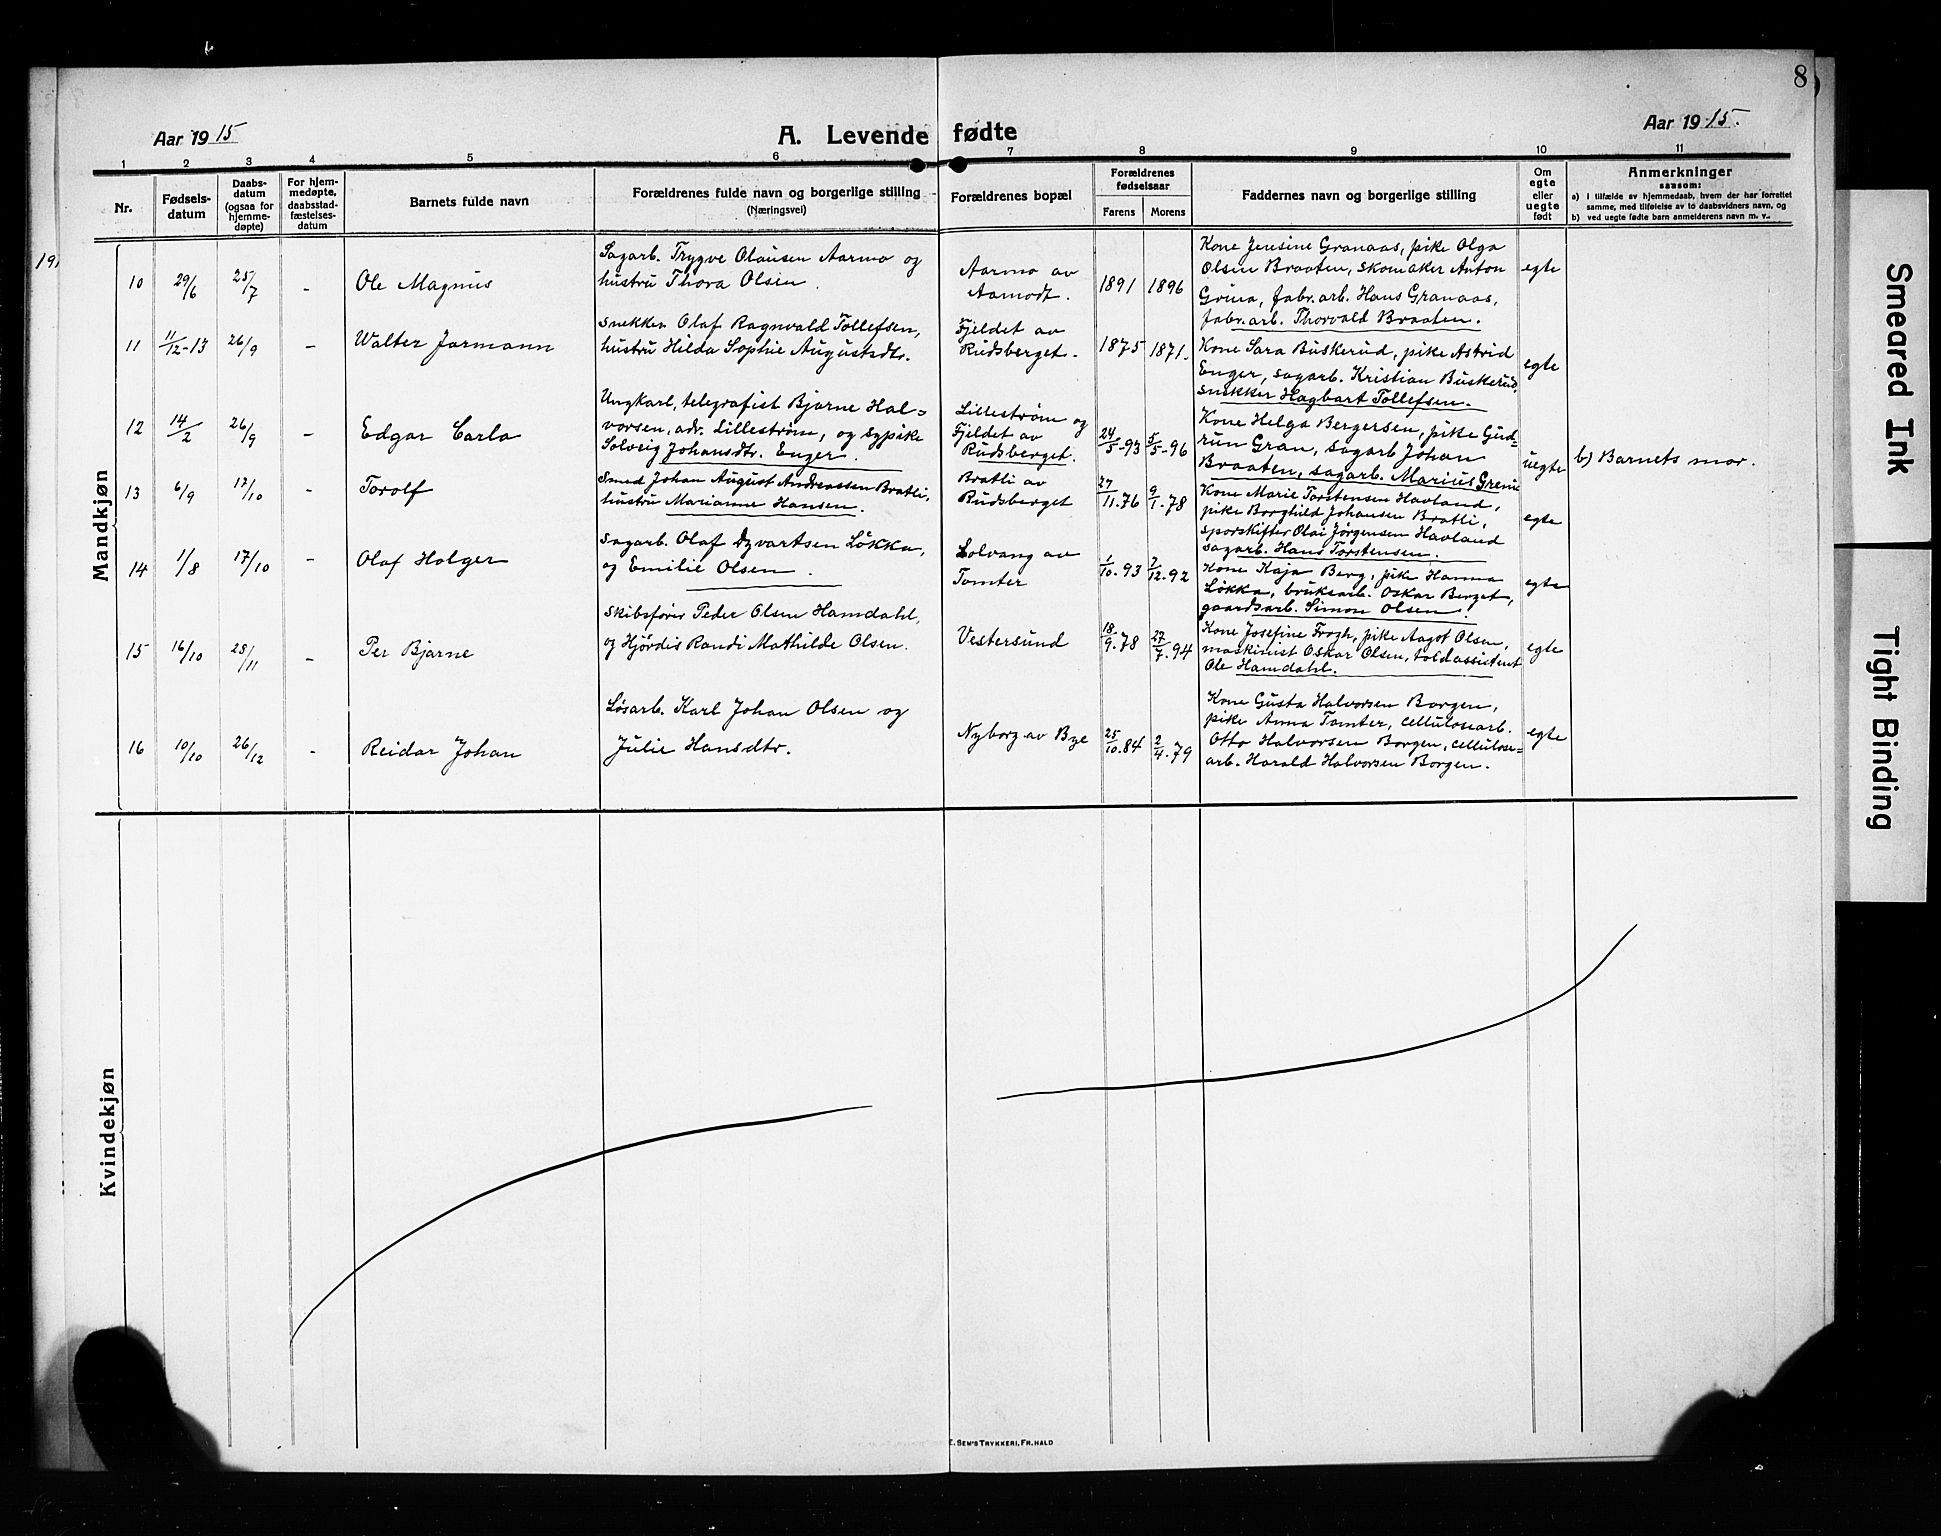 8
Aar 1915
A. Levende fødte
Aar 1915.
1 2 3 4 5 6 7 8 9 10 11
Nr.
Fødsels-
datum
Daabs-
datum
(ogsaa for
hjemme-
døpte)
For hjem-
medøpte,
daabsstad-
fæstelses-
datum
Barnets fulde navn
Forældrenes fulde navn og borgerlige stilling
(Næringsvei)
Forældrenes bopæl
Forældrenes
fødselsaar
Farens Morens
Faddernes navn og borgerlige stilling
Om
egte
eller
uegte
født
Anmerkninger
saasom:
a) I tilfælde av hjemmedaab, hvem der har forrettet
samme, med tilføielse av to daabsvidners navn, og
b) ved uegte fødte barn anmelderens navn m. v..
191
Mandkjøn
10 29/6 25/7 - Ole Magnus
Sagarb. Trygve Olausen Aarmo og
hustru Thora Olsen.
Aarmo av
Aamodt.
1891 1896
Kone Jensine Granaas, pike Olga
Olsen Braaten, skomaker Anton
Grina, fabr.arb. Hans Granaas,
fabr.arb. Thorvald Braaten.
egte
11 11/12-13 26/9 - Walter Jarmann
Snekker Olaf Ragnvald Tollefsen,
hustru Hilda Sophie Augustsdtr.
Fjeldet av
Rudsberget.
1875 1871.
Kone Sara Buskerud, pike Astrid
Enger, sagarb. Kristian Buskerud,
snekker Hagbart Tollefsen.
egte
12 14/2 26/9 - Edgar Carlo
Ungkarl, telegrafist Bjarne Hal-
vorsen, adr. Lillestrøm, og sypike
Solveig Johansdtr. Enger.
Lillestrøm og
Fjeldet av
Rudsberget.
24/5-93 5/5-96
Kone Helga Bergersen, pike Gud-
run Gran, sagarb Johan
Braaten, sagarb. Marius Grenie
uegte
b) Barnets mor.
13 6/9 17/10 - Torolf
Smed Johan August Andreassen Bratli,
hustru Marianne Hansen.
Bratli av
Rudsberget
27/11.76 9/1.78
Kone Marie Torstensen Havland,
pike Borghild Johansen Bratli,
sporskifter Olai Jørgensen Havland
sagarb. Hans Torstensen.
egte
14 1/8 17/10 - Olaf Holger
Sagarb. Olaf Dyvartsen Løkka,
og Emilie Olsen.
Solvang av
Tomter
1/10.93 7/12.92
Kone Kaja Berg, pike Hanna
Løkka, bruksarb. Oskar Berget,
gaardsarb. Simon Olsen.
egte
15 16/10 28/11 - Per Bjarne
Skibsfører Peder Olsen Hamdahl,
og Hjørdis Randi Mathilde Olsen.
Vestersund
18/9.78 27/7.94
Kone Josefine Frogh, pike Aagot Olsen,
maskinist Oskar Olsen, toldassistent
Ole Hamdahl.
egte
16 10/10 26/12 - Reidar Johan
Løsarb. Karl Johan Olsen og
Julie Hansdtr.
Nyborg av Bye
25/10.84 2/4.79
Kone Gusta Halvorsen Borgen,
pike Anna Tomter, cellulosearb.
Otto Halvorsen Borgen, cellulose-
arb. Harald Halvorsen Borgen.
egte
Kvindekjøn
E. SEM'S TRYKKERI, FR.HALD
Smeared Ink
Tight Binding